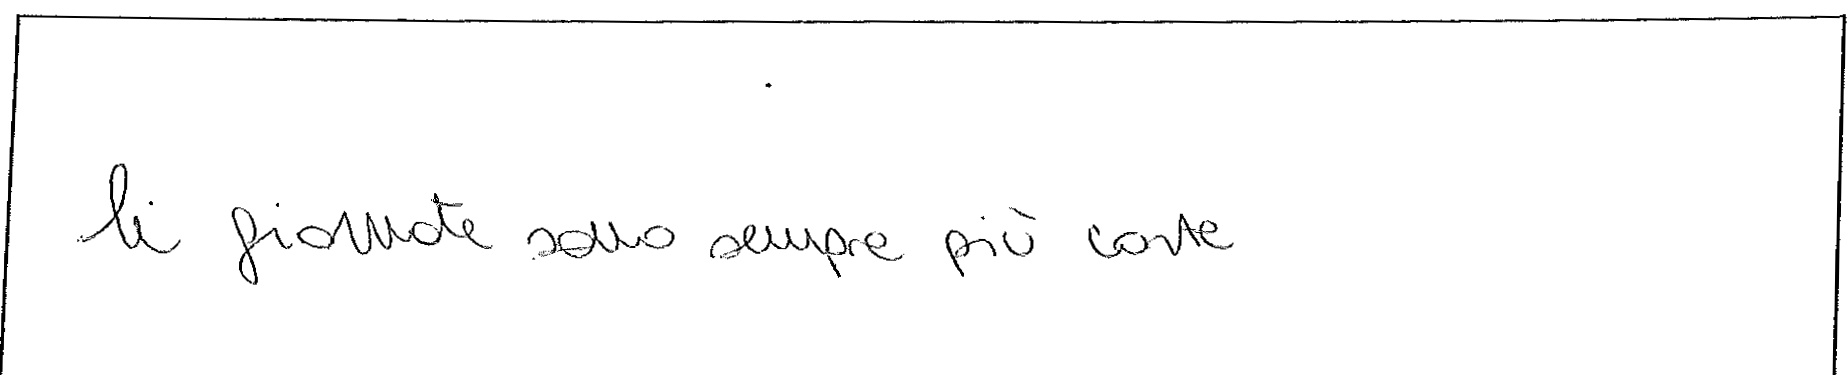 li giornate sono sempre più corte